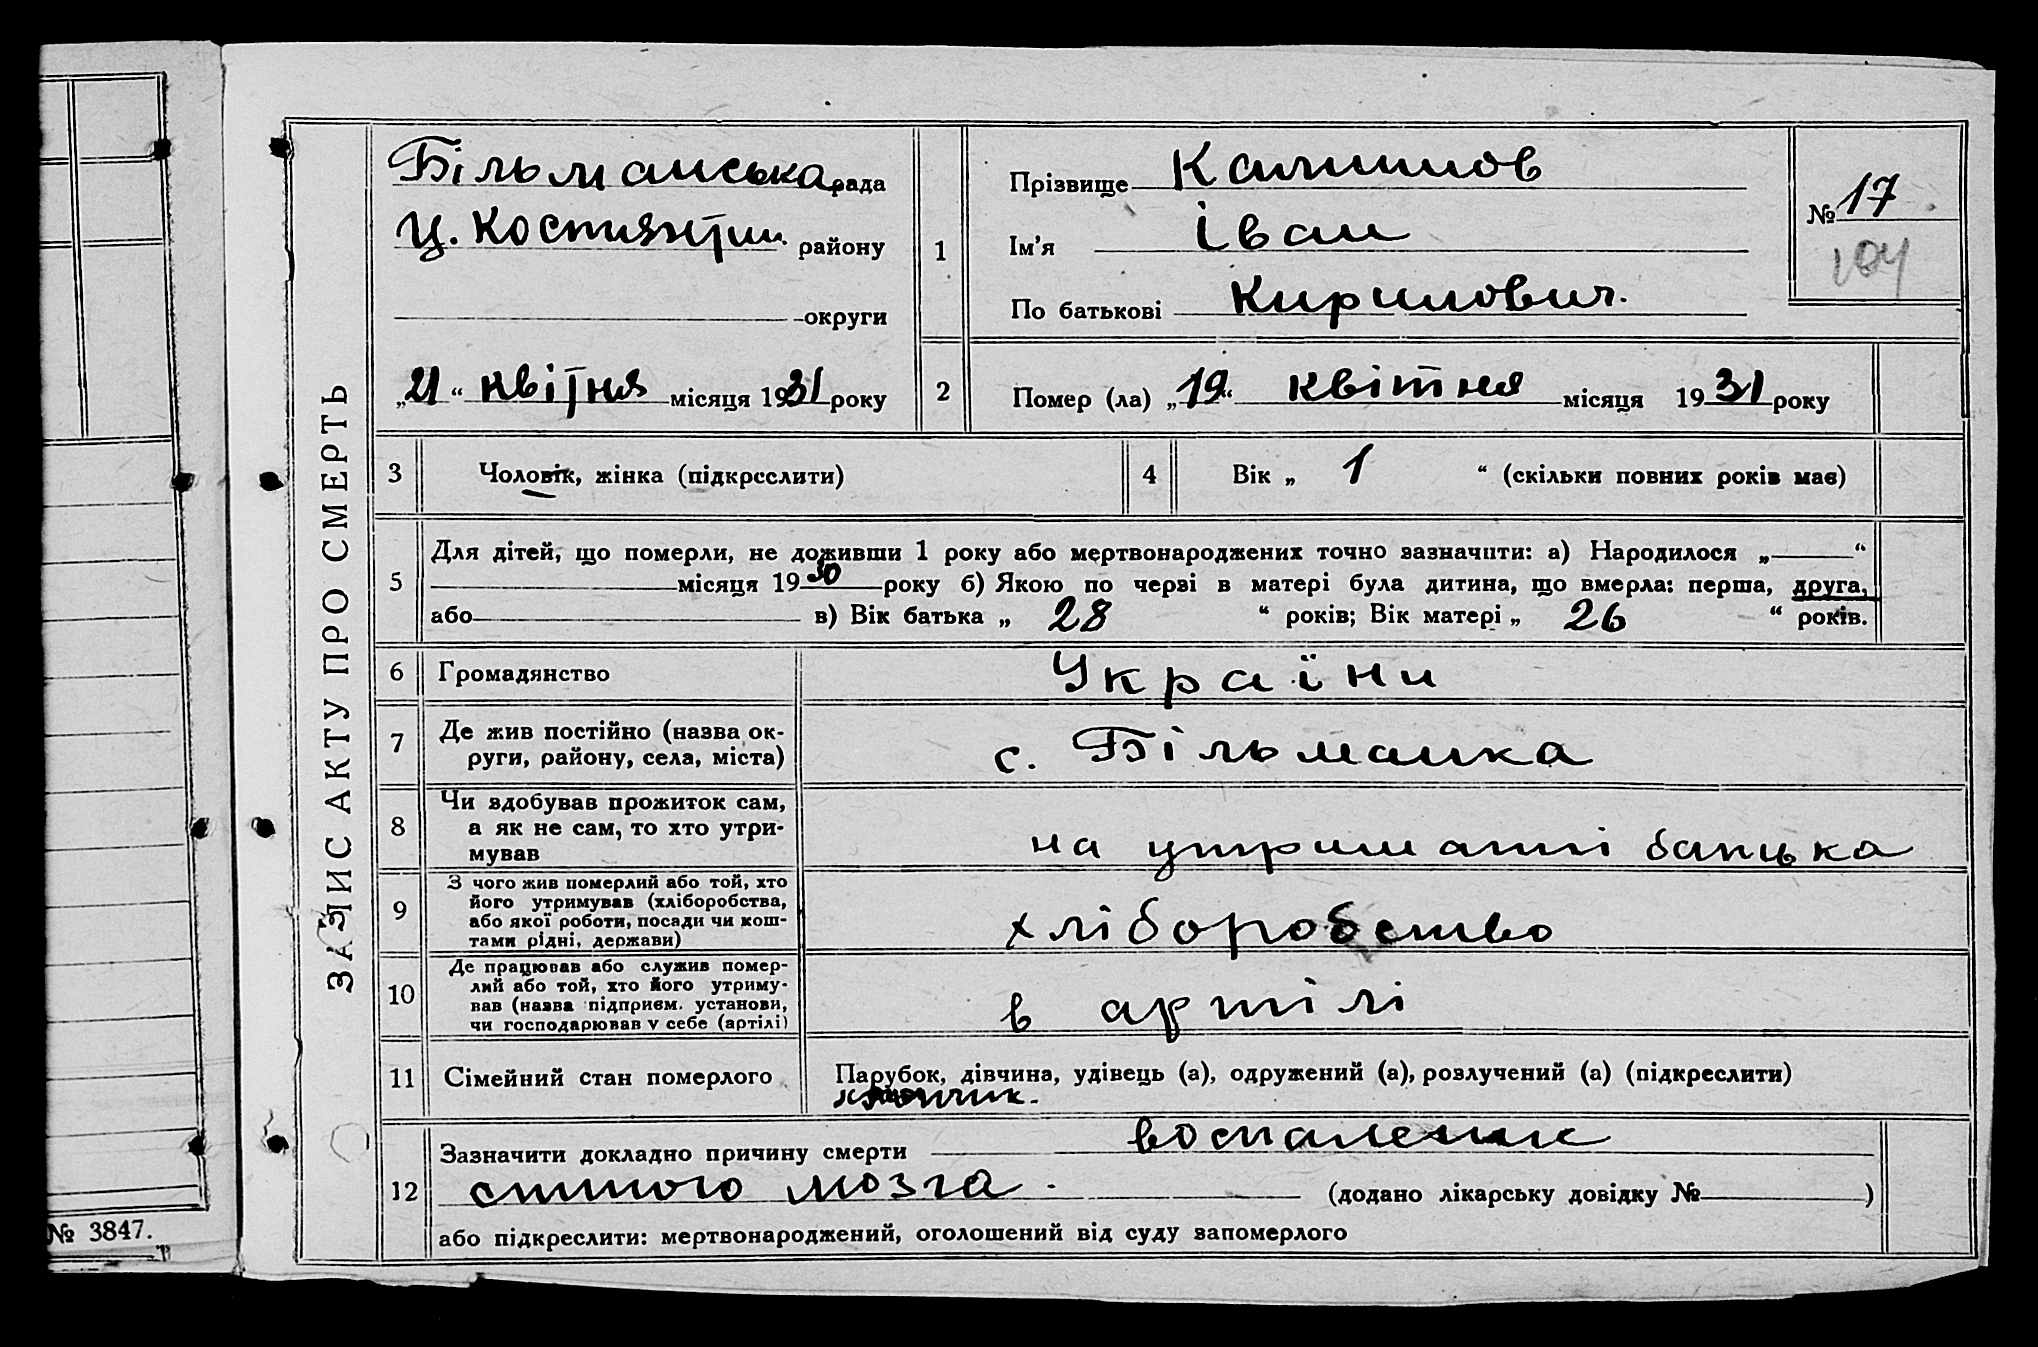 ЗАПИС АКТУ ПРО СМЕРТЬ
Більманська рада
Ц. Костянтин. району
округи
„21“ квітня місяця 1931 року
1
Прізвище
Імʼя Іван
По батькові Кирилович.
№ 17
104
2
Помер (ла) „19“ квітня місяця 1931 року
3
Чоловік, жінка (підкреслити)
4
Вік „ 1 “ (скільки повних років має)
5
Для дітей, що померли, не доживши 1 року або мертвонароджених точно зазначити: а) Народилося „ “
місяця 1930 року б) Якою по черзі в матері була дитина, що вмерла: перша, друга,
або в) Вік батька „ 28 “ років; Вік матері „ 26 “ років.
6
Громадянство
України
7
Де жив постійно (назва ок-
руги, району, села, міста)
с. Більманка
8
Чи здобував прожиток сам,
а як не сам, то хто утри-
мував
на утриманні батька
9
З чого жив померлий або той, хто
його утримував (хліборобства,
або якої роботи, посади чи кош-
тами рідні, держави)
хліборобство
10
Де працював або служив помер-
лий або той, хто його утриму-
вав (назва підприєм. установи,
чи господарював у себе (артілі)
в артілі
11
Сімейний стан померлого
Парубок, дівчина, удівець (а), одружений (а), розлучений (а) (підкреслити)
хлопчик.
12
Зазначити докладно причину смерти воспаление
спиного мозга.
(додано лікарську довідку № )
або підкреслити: мертвонароджений, оголошений від суду запомерлого
№ 3847.